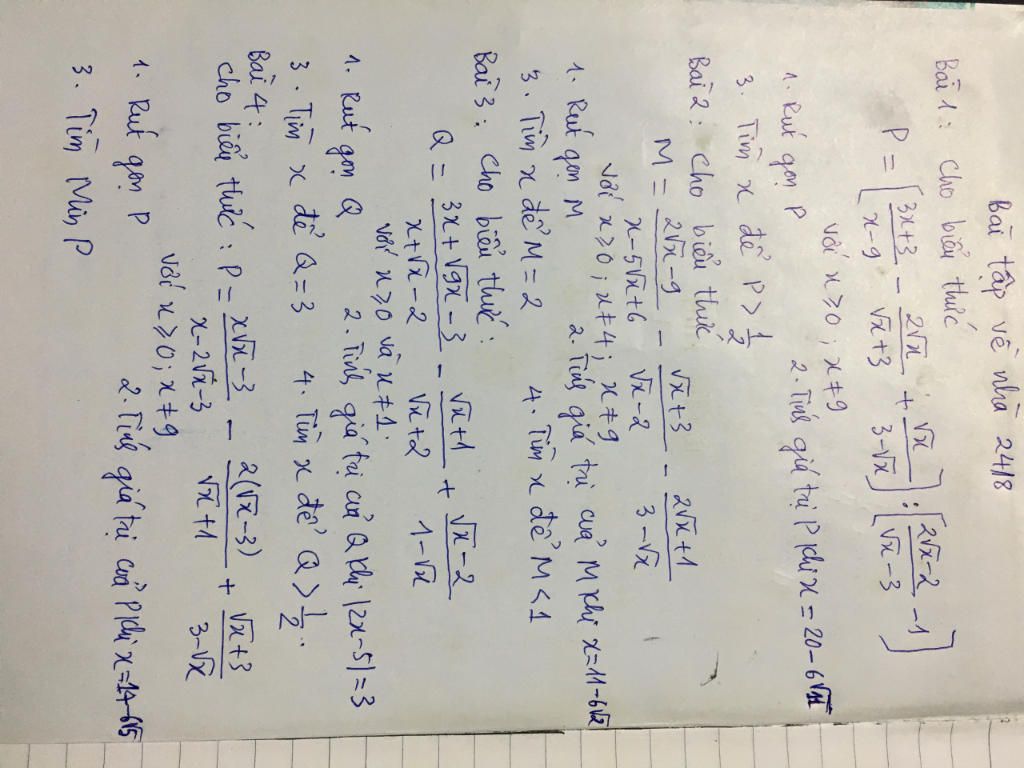 Bài tập về nhà 24/8
Bài 1: Cho biểu thức
P = [(3x+3)/(x-9) - 2√x/(√x+3) + √x/(3-√x)] : [(2√x-2)/(√x-3) - 1]
với x≥0; x≠9
1. Rút gọn P 2. Tính giá trị P khi x = 20-6√11
3. Tìm x để P > 1/2
Bài 2: Cho biểu thức
M = (2√x-9)/(x-5√x+6) - (√x+3)/(√x-2) - (2√x+1)/(3-√x)
với x≥0; x≠4; x≠9
1. Rút gọn M 2. Tính giá trị của M khi x=11-6√2
3. Tìm x để M=2 4. Tìm x để M<1
Bài 3: Cho biểu thức:
Q = (3x+√9x-3)/(x+√x-2) - (√x+1)/(√x+2) + (√x-2)/(1-√x)
với x≥0 và x≠1.
1. Rút gọn Q 2. Tính giá trị của Q khi |2x-5|=3
3. Tìm x để Q=3 4. Tìm x để Q > 1/2.
Bài 4:
Cho biểu thức: P = (x√x-3)/(x-2√x-3) - 2(√x-3)/(√x+1) + (√x+3)/(3-√x)
với x≥0; x≠9
1. Rút gọn P 2. Tính giá trị của P khi x=14-6√5
3. Tìm Min P